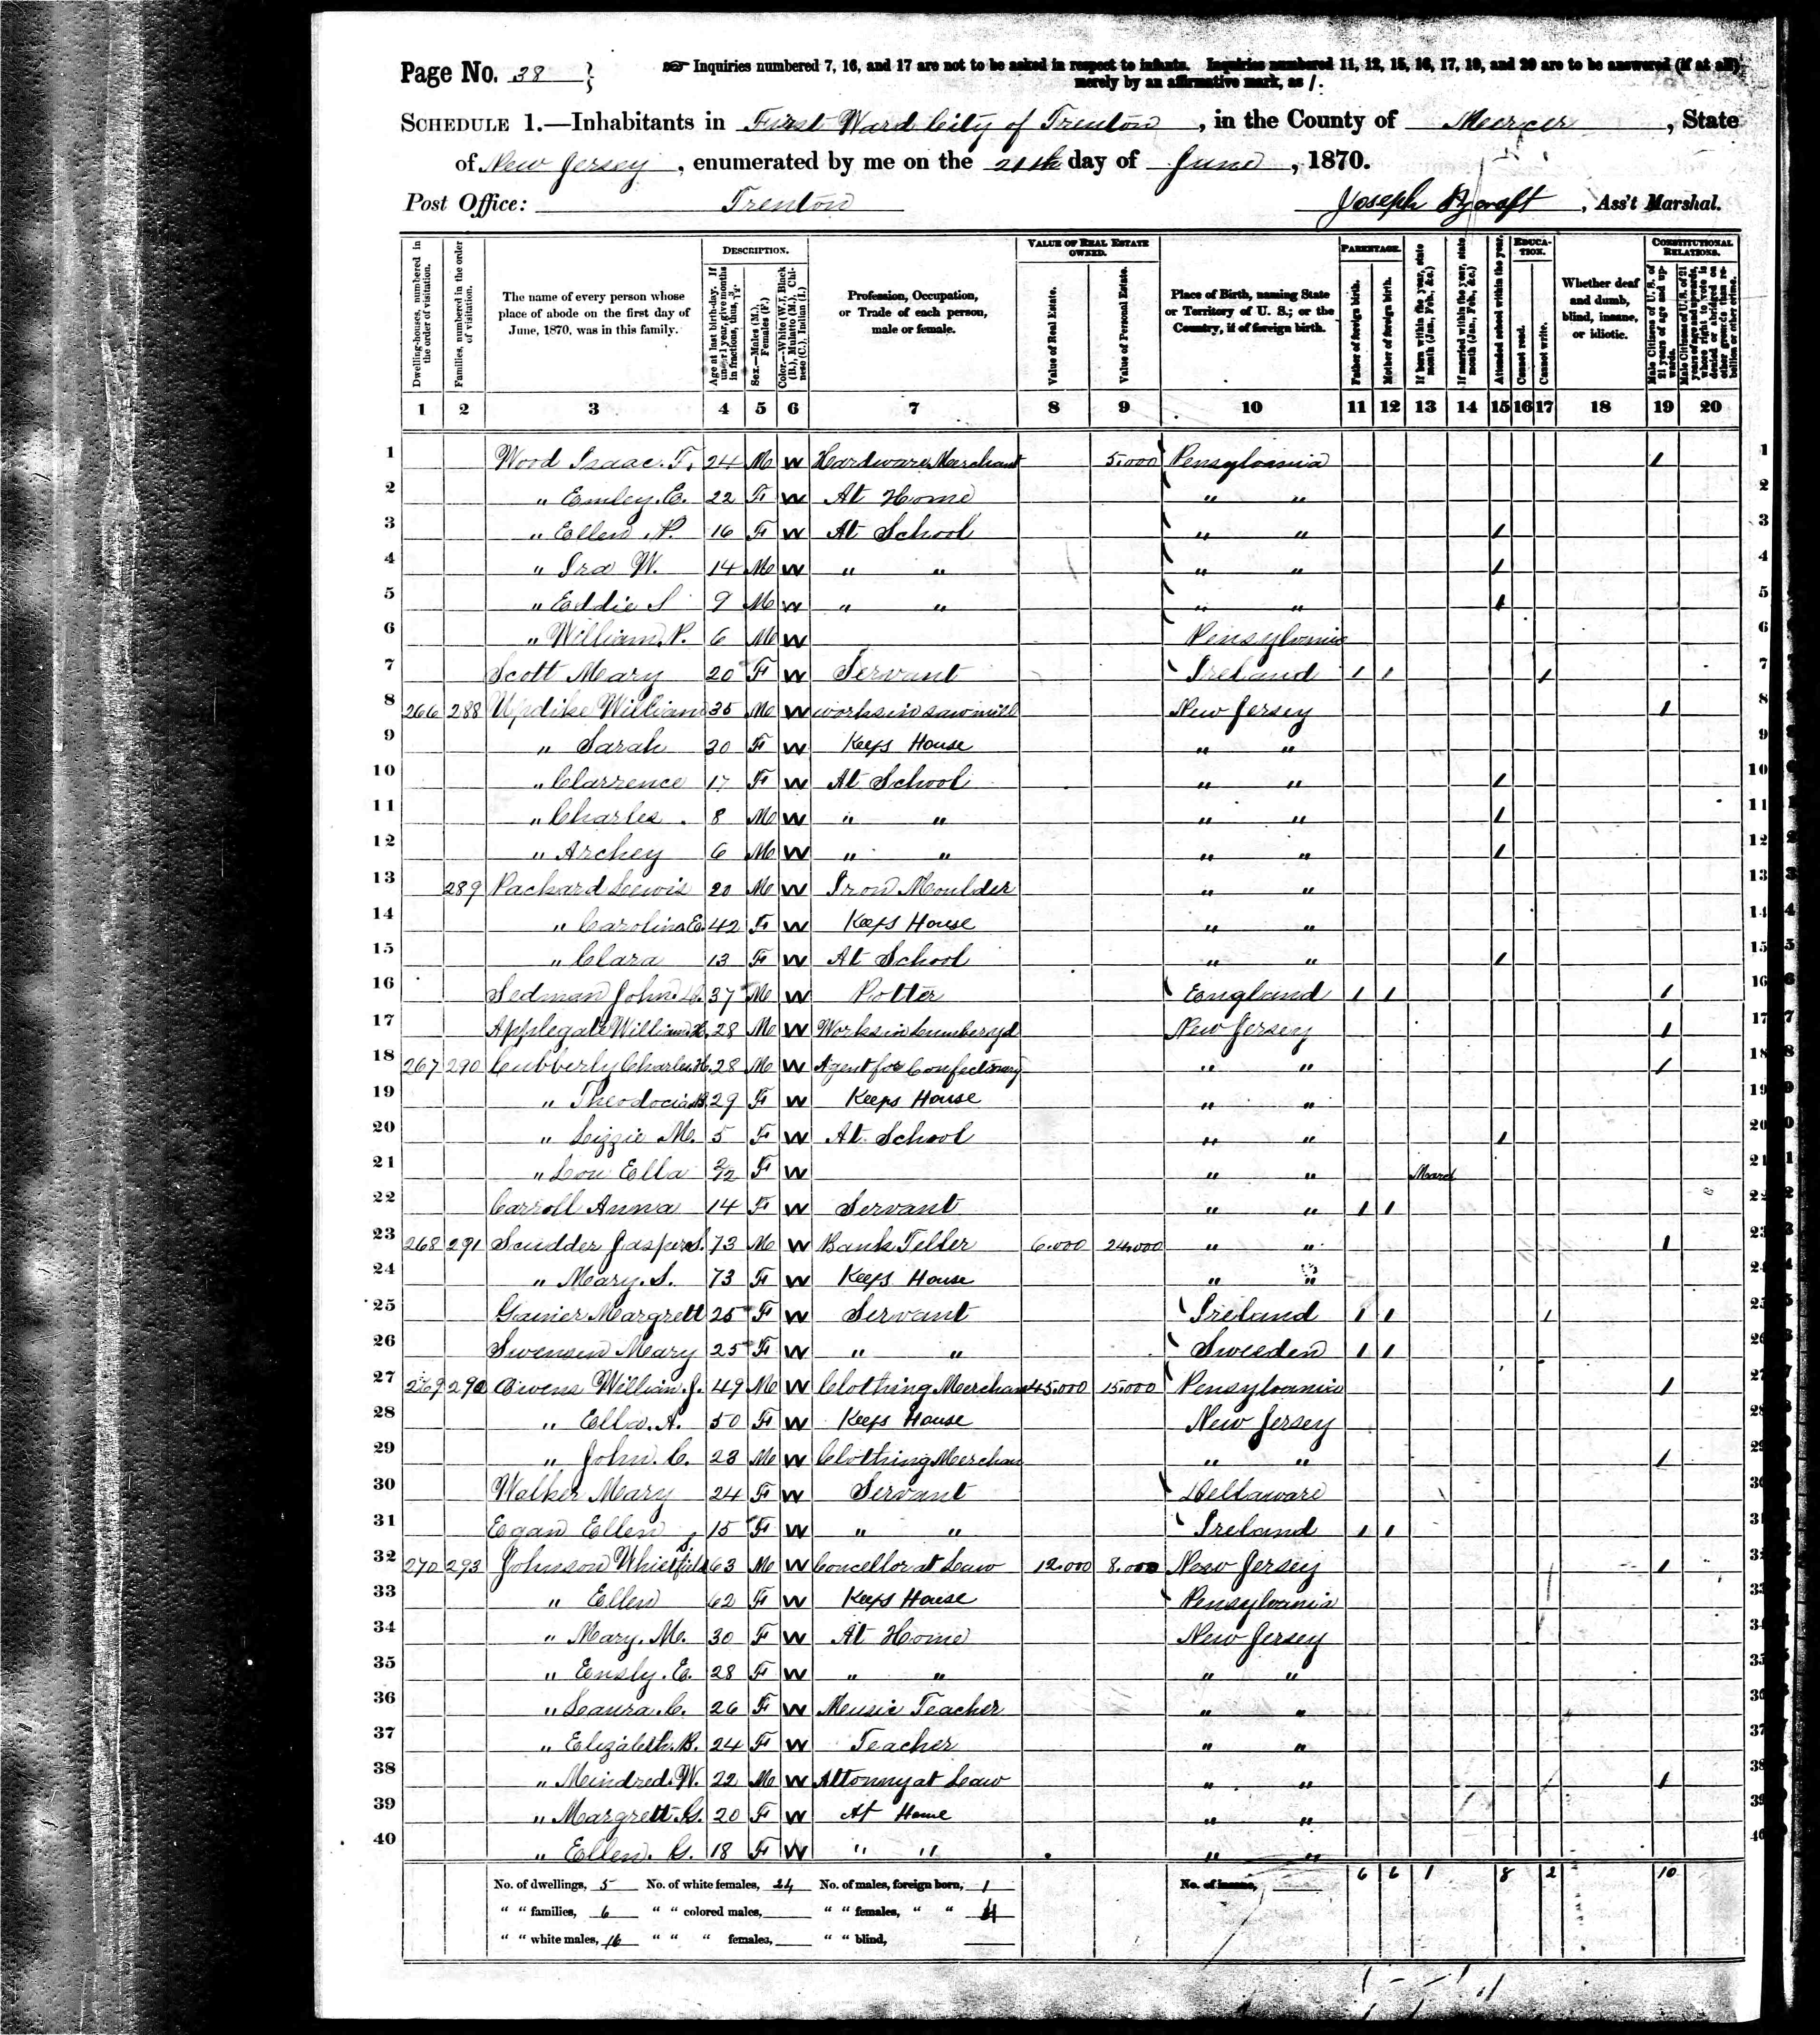 Page No. 38
☞ Inquiries numbered 7, 16, and 17 are not to be asked in respect to infants. Inquiries numbered 11, 12, 15, 16, 17, 19, and 20 are to be answered (if at all) merely by an affirmative mark, as /.
SCHEDULE 1.—Inhabitants in First Ward City of Trenton, in the County of Mercer, State
of New Jersey, enumerated by me on the day of June, 1870.
Post Office: Trenton
Joseph, Ass't Marshal.
Dwelling-houses, numbered in the order of visitation.
Families, numbered in the order of visitation.
The name of every person whose place of abode on the first day of June, 1870, was in this family.
DESCRIPTION.
Age at last birth-day. If under 1 year, give months in fractions, thus, 3/12.
Sex.—Males (M.), Females (F.)
Color.—White (W.), Black (B.), Mulatto (M.), Chinese (C.), Indian (I.)
Profession, Occupation, or Trade of each person, male or female.
VALUE OF REAL ESTATE OWNED.
Value of Real Estate.
Value of Personal Estate.
Place of Birth, naming State or Territory of U. S.; or the Country, if of foreign birth.
PARENTAGE.
Father of foreign birth.
Mother of foreign birth.
If born within the year, state month (Jan., Feb., &c.)
If married within the year, state month (Jan., Feb., &c.)
Attended school within the year.
EDUCATION.
Cannot read.
Cannot write.
Whether deaf and dumb, blind, insane, or idiotic.
CONSTITUTIONAL RELATIONS.
Male Citizens of U. S. of 21 years of age and upwards.
Male Citizens of U. S. of 21 years of age and upwards, whose right to vote is denied or abridged on other grounds than rebellion or other crime.
1 2 3 4 5 6 7 8 9 10 11 12 13 14 15 16 17 18 19 20
1 Wood Isaac. T. 24 M W Hardware Merchant 5.000 Pensylvania / 1
2 " Emley. E. 22 F W At Home " " 2
3 " Ellen. P. 16 F W At School " " / 3
4 " Ira W. 14 M W " " " " / 4
5 " Eddie S 9 M W " " " " / 5
6 " William. P. 6 M W Pensylvania 6
7 Scott Mary 20 F W Servant Ireland / / / 7
8 266 288 Updike William 35 M W works in sawmill New Jersey / 8
9 " Sarah 30 F W Keeps House " " 9
10 " Clarrence 17 F W At School " " / 10
11 " Charles. 8 M W " " " " / 11
12 " Archey 6 M W " " " " / 12
13 289 Packard Lewis 20 M W Iron Moulder " " 13
14 " Carolina E. 42 F W Keeps House " " 14
15 " Clara 13 F W At School " " / 15
16 Sedman John. 37 M W Potter England / / / 16
17 Applegate William H. 28 M W Works in Lumberyd New Jersey / 17
18 267 290 Cubberly Charles H. 28 M W Agent for Confectionary " " / 18
19 " Theodocia 29 F W Keeps House " " 19
20 " Lizzie M. 5 F W At School " " / 20
21 " Lou Ella 2/12 F W " " March 21
22 Carroll Anna 14 F W Servant " " / / 22
23 268 291 Scudder Jasper S. 73 M W Bank Teller 6.000 24.000 " " / 23
24 " Mary. S. 73 F W Keeps House " " 24
25 Gainier Margrett 25 F W Servant Ireland / / / 25
26 Swensen Mary 25 F W " " Sweeden / / 26
27 269 292 Owens William J. 49 M W Clothing Merchan 45.000 15.000 Pensylvania / 27
28 " Ella. A. 50 F W Keeps House New Jersey 28
29 " John. C. 23 M W Clothing Merchan " " / 29
30 Walker Mary 24 F W Servant Dellaware 30
31 Egan Ellen 15 F W " " Ireland / / 31
32 270 293 Johnson Whietfield S. 63 M W Concellor at Law 12.000 8.000 New Jersey / 32
33 " Ellen 62 F W Keeps House Pensylvania 33
34 " Mary. M. 30 F W At Home New Jersey 34
35 " Emsly. E. 28 F W " " " " 35
36 " Laura. C. 26 F W Meusic Teacher " " 36
37 " Elizabeth. B. 24 F W Teacher " " 37
38 " Meindred. W. 22 M W Attonny at Law " " / 38
39 " Margrett. G. 20 F W At Home " " 39
40 " Ellen. G. 18 F W " " " " 40
No. of dwellings, 5 No. of white females, 24 No. of males, foreign born, 1 No. of insane, 6 6 1 8 2 10
" " families, 6 " " colored males, " " females, " " 4
" " white males, 16 " " " females, " " blind,